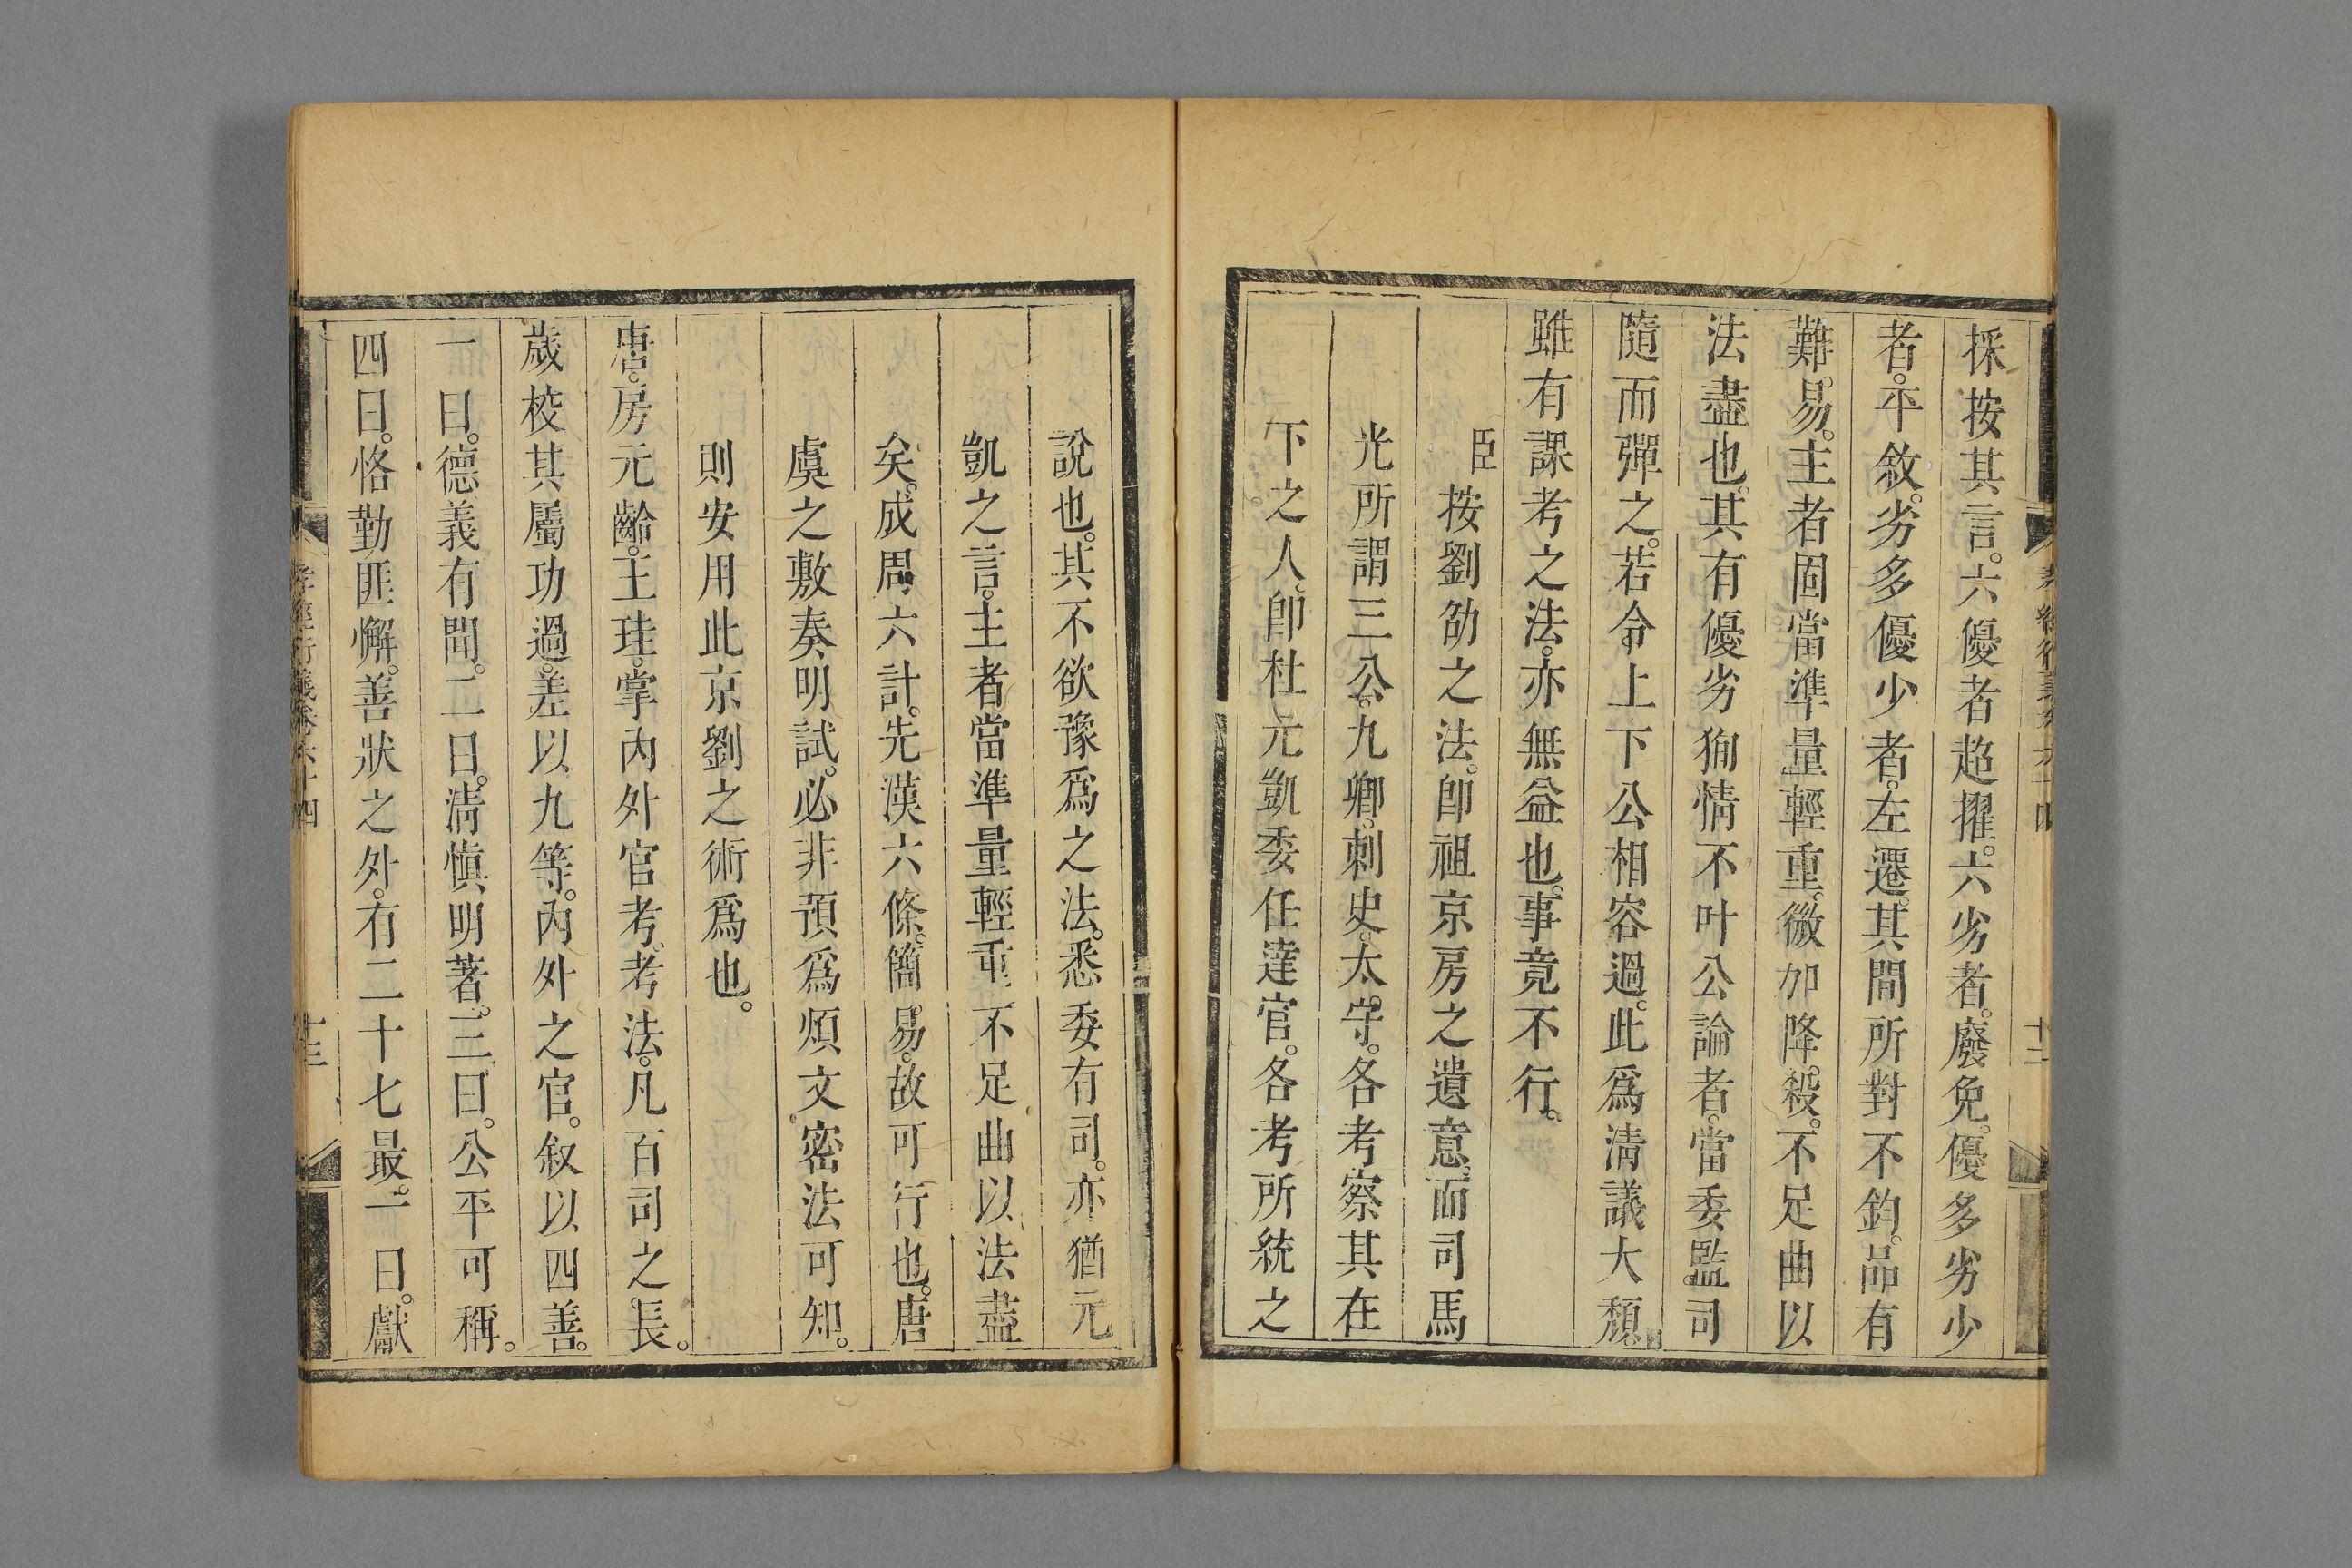 採按其言。六優者超擢。六劣者。廢免。優多劣少
者。平敘。劣多優少者。左遷。其間所對不鈞。品有
難。易。主者固當準量輕重。微加降。殺。不足曲以
法盡也。其有優劣狥情不叶公論者。當委監司
隨而彈之。若令。上下公相容過。此爲淸議大頹。
雖有課考之法。亦無益也。事竟不行。
臣按劉劭之法。卽祖京房之遺意。而司馬
光所謂三公。九卿。刺史。太守。各考察其在
下之人。卽杜元凱委任達官。各考所統之
說也。其不欲豫爲之法。悉委有司。亦猶元
凱之言。主者當準量輕重不足曲以法盡
矣。成周六計。先漢六條。簡。易。故可行也。唐
虞之敷奏明試。必非預爲煩文密法可知。
則安用此京劉之術爲也。
唐。房元齡。王珪。掌內外官考。考法。凡百司之長。
歲校其屬功過。差以九等。內外之官。敘以四善。
一曰。德義有聞。二曰。淸愼明著。三曰。公平可稱。
四曰。恪勤匪懈。善狀之外。有二十七最。一曰。獻
孝經衍義卷六十四
十三